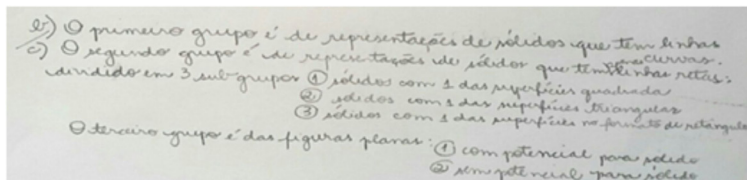 b) O primeiro grupo é de representações de sólidos que tem linhas
curvas.
c) O segundo grupo é de representações de sólidos que tem linhas retas:
dividido em 3 sub-grupos ① sólidos com 1 das superfícies quadrada
② sólidos com 1 das superfícies triangular
③ sólidos com 1 das superfícies no formato de retângulo
O terceiro grupo é das figuras planas: ① com potencial para sólido
② sem potencial para sólido